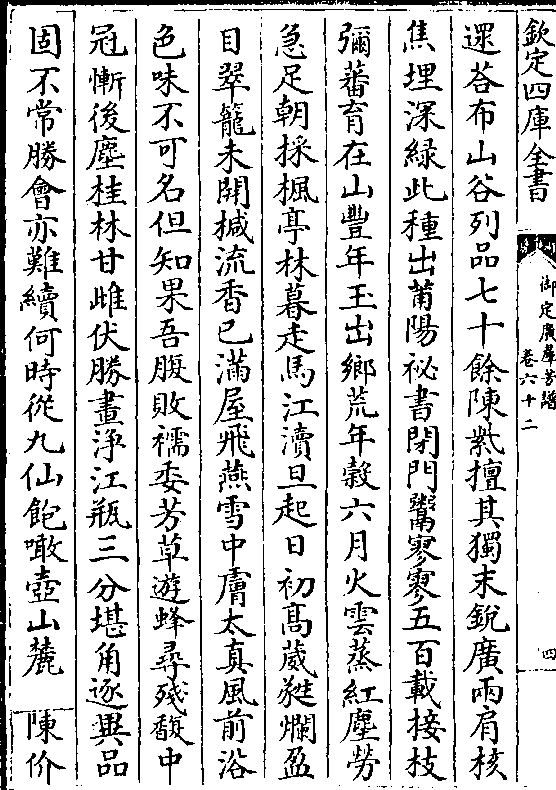 欽定四庫全書
御定廣羣芳譜
卷六十二
四
遝荅布山谷列品七十餘陳紫擅其獨末銳廣兩肩核
焦埋深綠此種出莆陽祕書閉門鬻寥寥五百載接枝
彌蕃育在山豐年玉出鄉荒年穀六月火雲蒸紅塵勞
急足朝採楓亭林暮走馬江瀆旦起日初髙葳蕤爛盈
目翠籠未開椷流香已滿屋飛燕雪中膚太真風前浴
色味不可名但知果吾腹敗襦委芳草遊蜂尋殘馥中
冠慚後塵桂林甘雌伏勝畫淨江瓶三分堪角逐異品
固不常勝會亦難續何時從九仙飽噉壺山麓
陳价